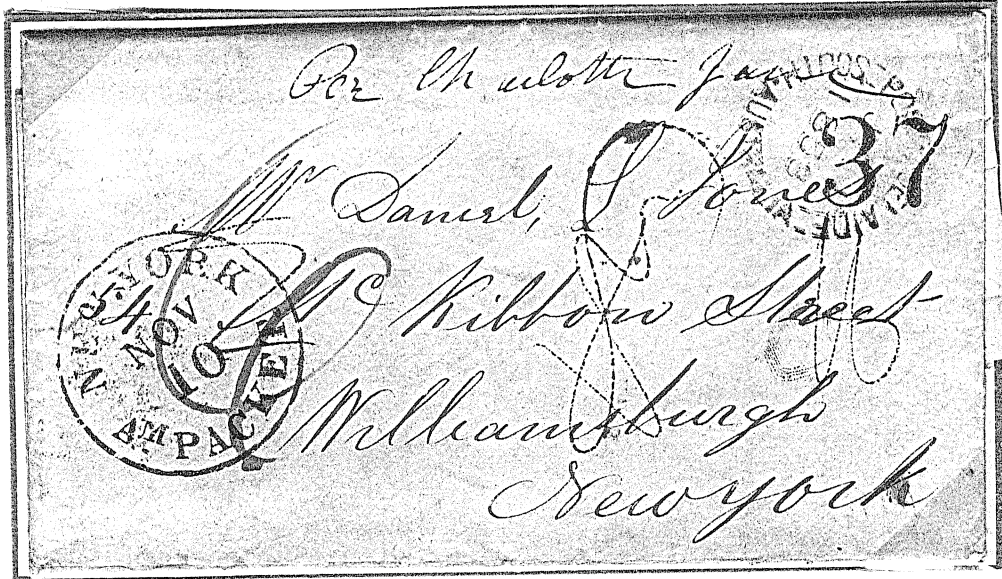 Per Charlotte Jane
37
Mr Daniel, S Jones
54 Mc Kibbon Street
Williamsburgh
New york
NEW-YORK
NOV
10
AM PACKET